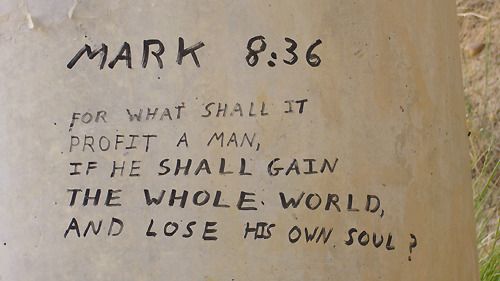 MARK 8:36
FOR WHAT SHALL IT
PROFIT A MAN,
IF HE SHALL GAIN
THE WHOLE WORLD,
AND LOSE HIS OWN SOUL?